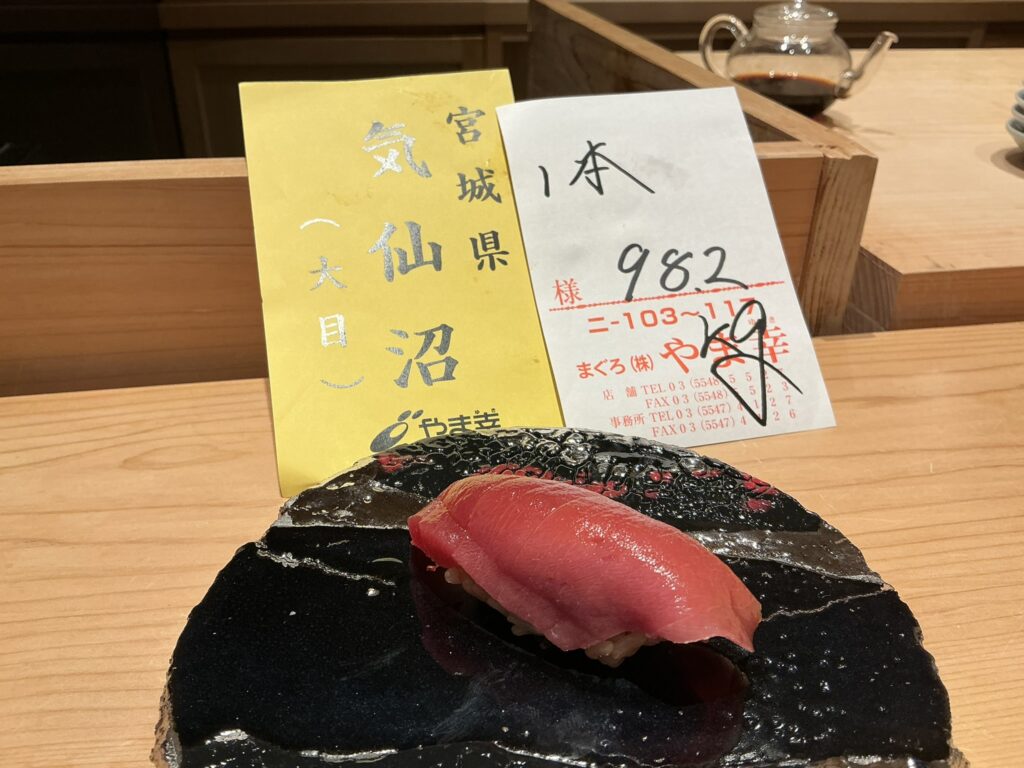 宮城県
気仙沼
（大目）
やま幸
1本
98.2
kg
様
ニ-103～117
まぐろ(株) やま幸
店 舗 TEL 03 (5548)
FAX 03 (5548)
事務所 TEL 03 (5547)
FAX 03 (5547)